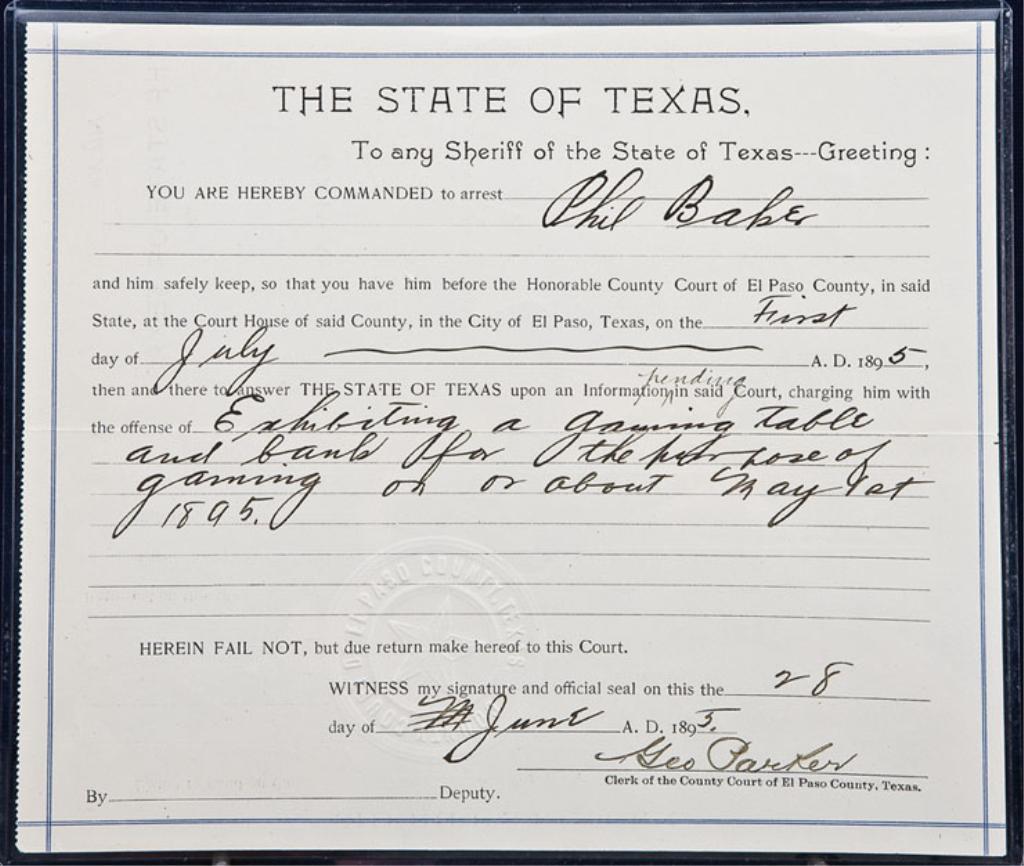 THE STATE OF TEXAS,
To any Sheriff of the State of Texas---Greeting:
YOU ARE HEREBY COMMANDED to arrest Phil Baker
and him safely keep, so that you have him before the Honorable County Court of El Paso County, in said
State, at the Court House of said County, in the City of El Paso, Texas, on the First
day of July A. D. 1895,
pending
then and there to answer THE STATE OF TEXAS upon an Information in said Court, charging him with
the offense of Exhibiting a gaming table
and bank for the purpose of
gaming on or about May 1st
1895.
HEREIN FAIL NOT, but due return make hereof to this Court.
WITNESS my signature and official seal on this the 28
day of June A. D. 1895.
Geo Parker
Clerk of the County Court of El Paso County, Texas.
By Deputy.
EL PASO COUNTY, TEXAS